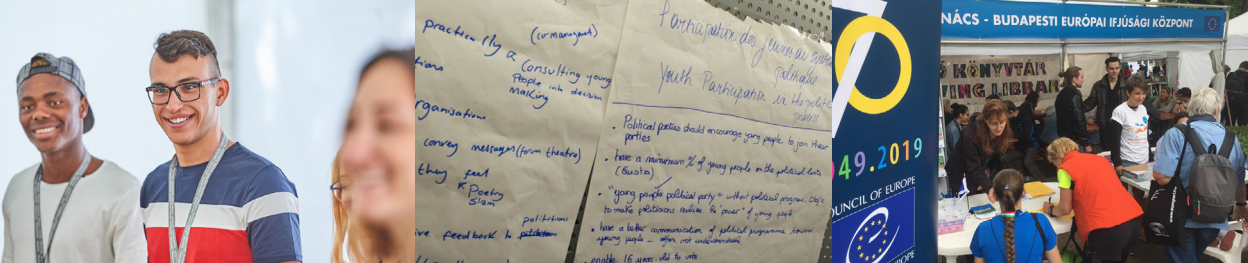 (co-managent)
practice (by &
consulting young
people into decision
making
tions
rganisations
convey messages (forum theatre)
they feel
Poetry
Slam
politicians
ive feedback to
Participation des jeunes au
politique
Youth Participation in the political
process
• Political parties should encourage young people to join their
parties
• have a minimum % of young people on the political lists
(Quota)
• "young people political party" without political program. Obj:
to make politicians realize the "power" of young people
• have a better communication of political programme toward
young people - often not understandable
• enable 16 years old to vote.
70
949.2019
OUNCIL OF EUROPE
OF EUROPE
NÁCS - BUDAPESTI EURÓPAI IFJÚSÁGI KÖZPONT
KÖNYVTÁR
VING LIBRAR